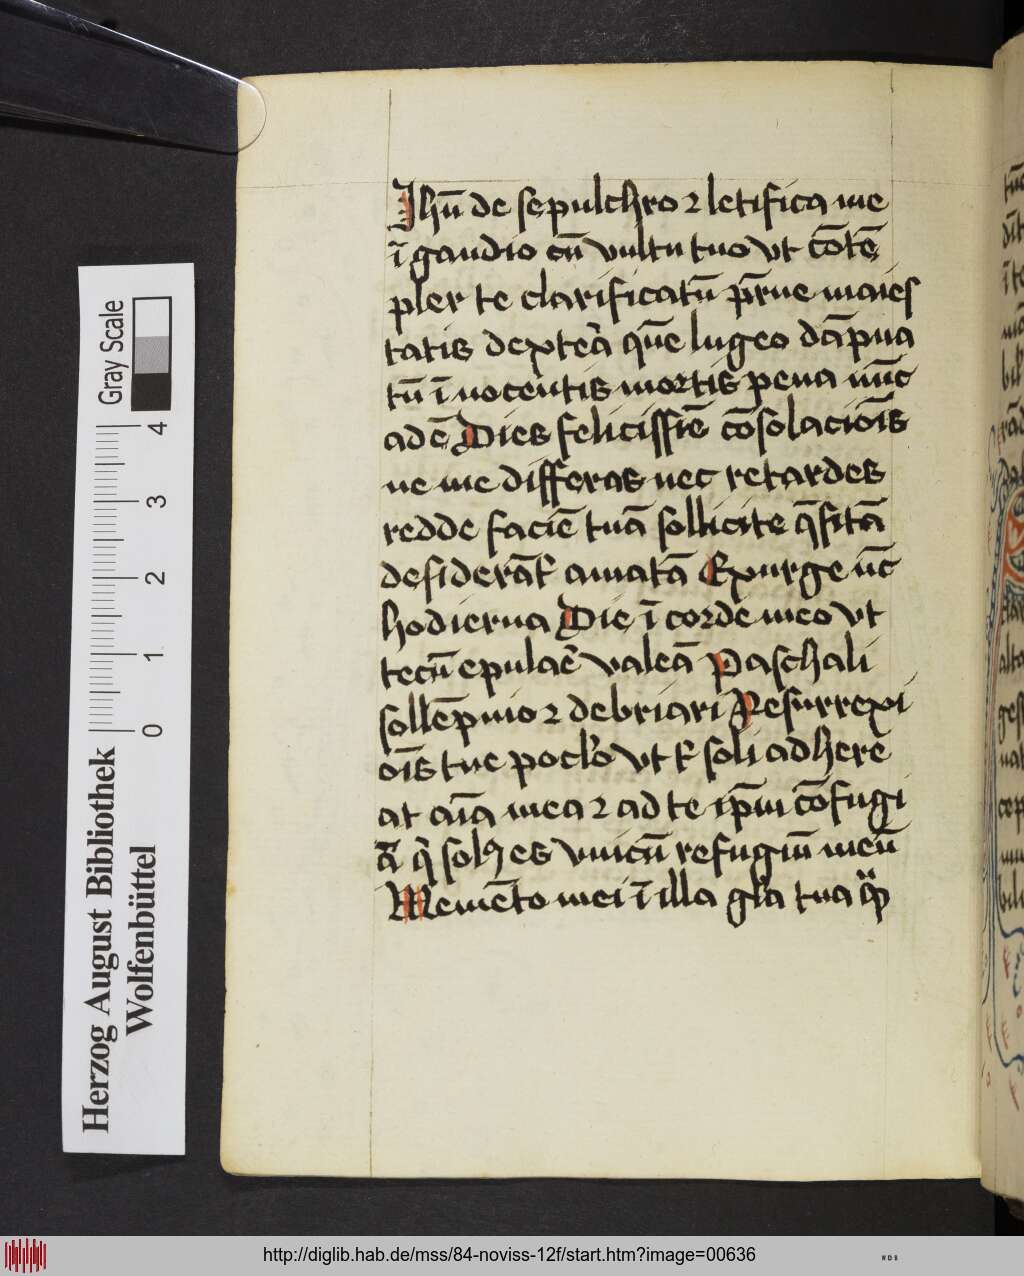 Jhū de sepulchro ⁊ letifica me
ī gaudio cū vultu tuo vt cōtē
pler te clarificatū p̄rne maies
tatis dextera᷑ quē lugeo dāpna
tū īnocentis mortis pena nūc
adē Dies felicissīe cōsolaciōis
ne me differas nec retardes
redde faciē tuā sollicite q̄sitā
desiderāt amatā Exurge ūc
hodierna Die ī corde meo vt
tecū epulae᷑ valeā Paschali
sollēpnio ⁊ debriari Resurrexi
ōis tue poclo vt t̄ soli adhere
at aīa mea ⁊ ad te ip̄m cōfugi
a᷑ q̄ solꝯ es vnicū refugiū meū
Memēto mei ī illa gl̄a tua q̄ꝓ
Gray Scale
0 1 2 3 4
Herzog August Bibliothek
Wolfenbüttel
http://diglib.hab.de/mss/84-noviss-12f/start.htm?image=00636